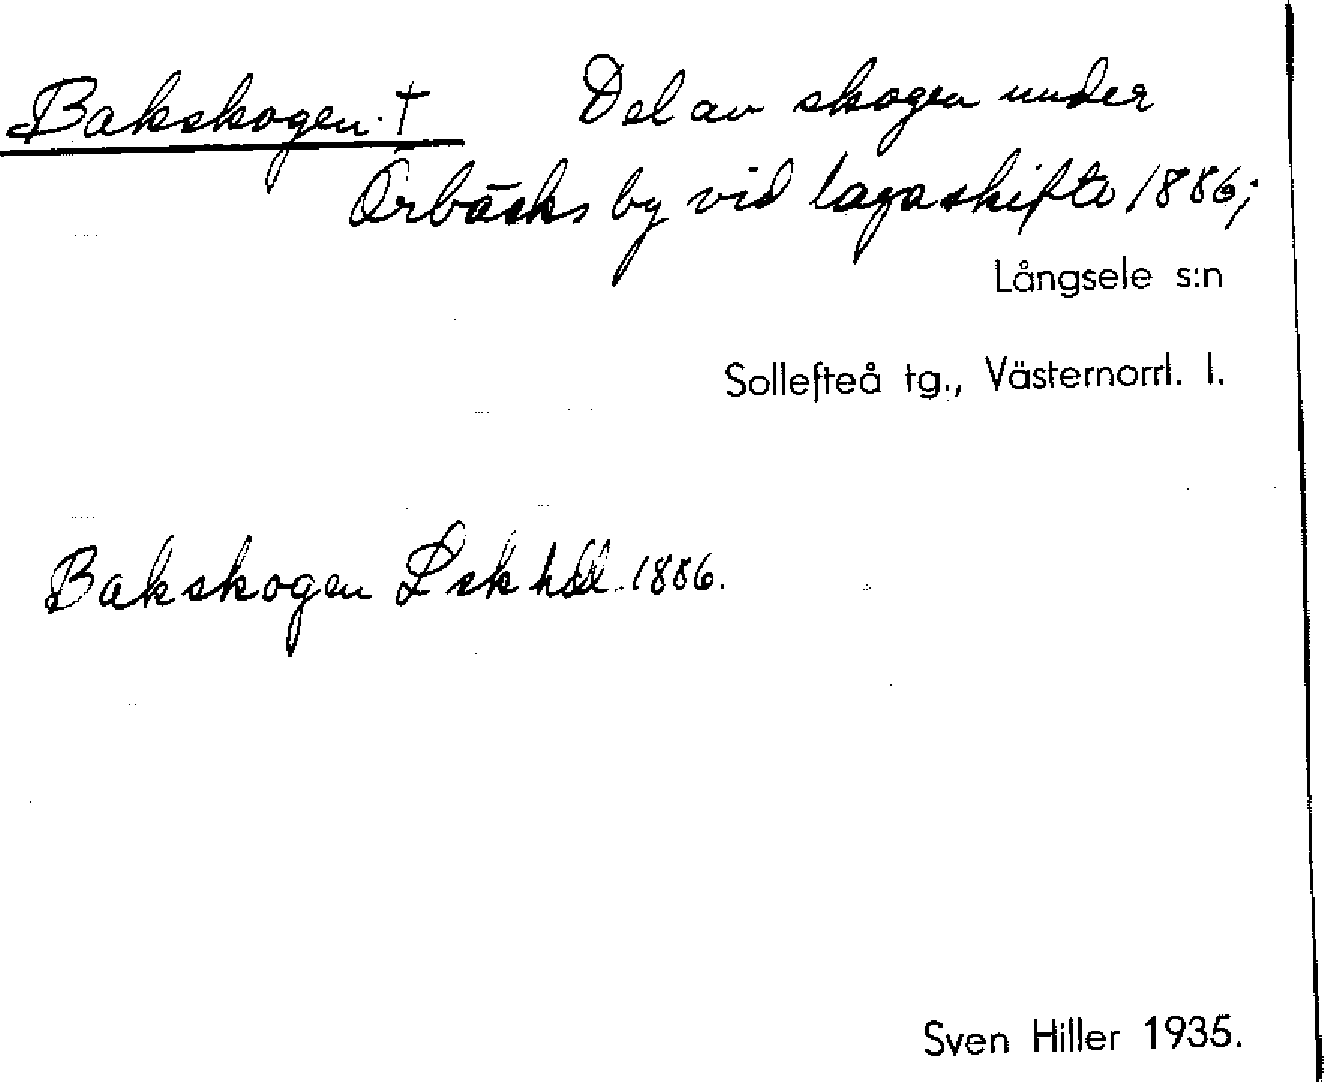 Bakskogen. † Del av skogen under
Örbäcks by vid lagaskifte 1886;
Långsele s:n
Sollefteå tg., Västernorrl. l.
Bakskogen Lsk hdl. 1886.
Sven Hiller 1935.